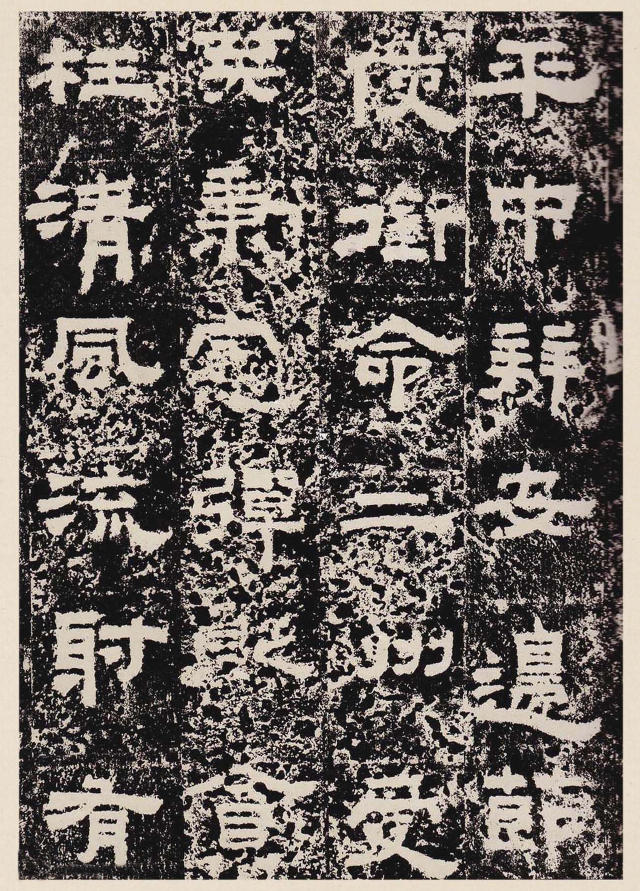 平中拜安邊節
使銜命二州受
莫秉彈貶貪
枉清風流射有